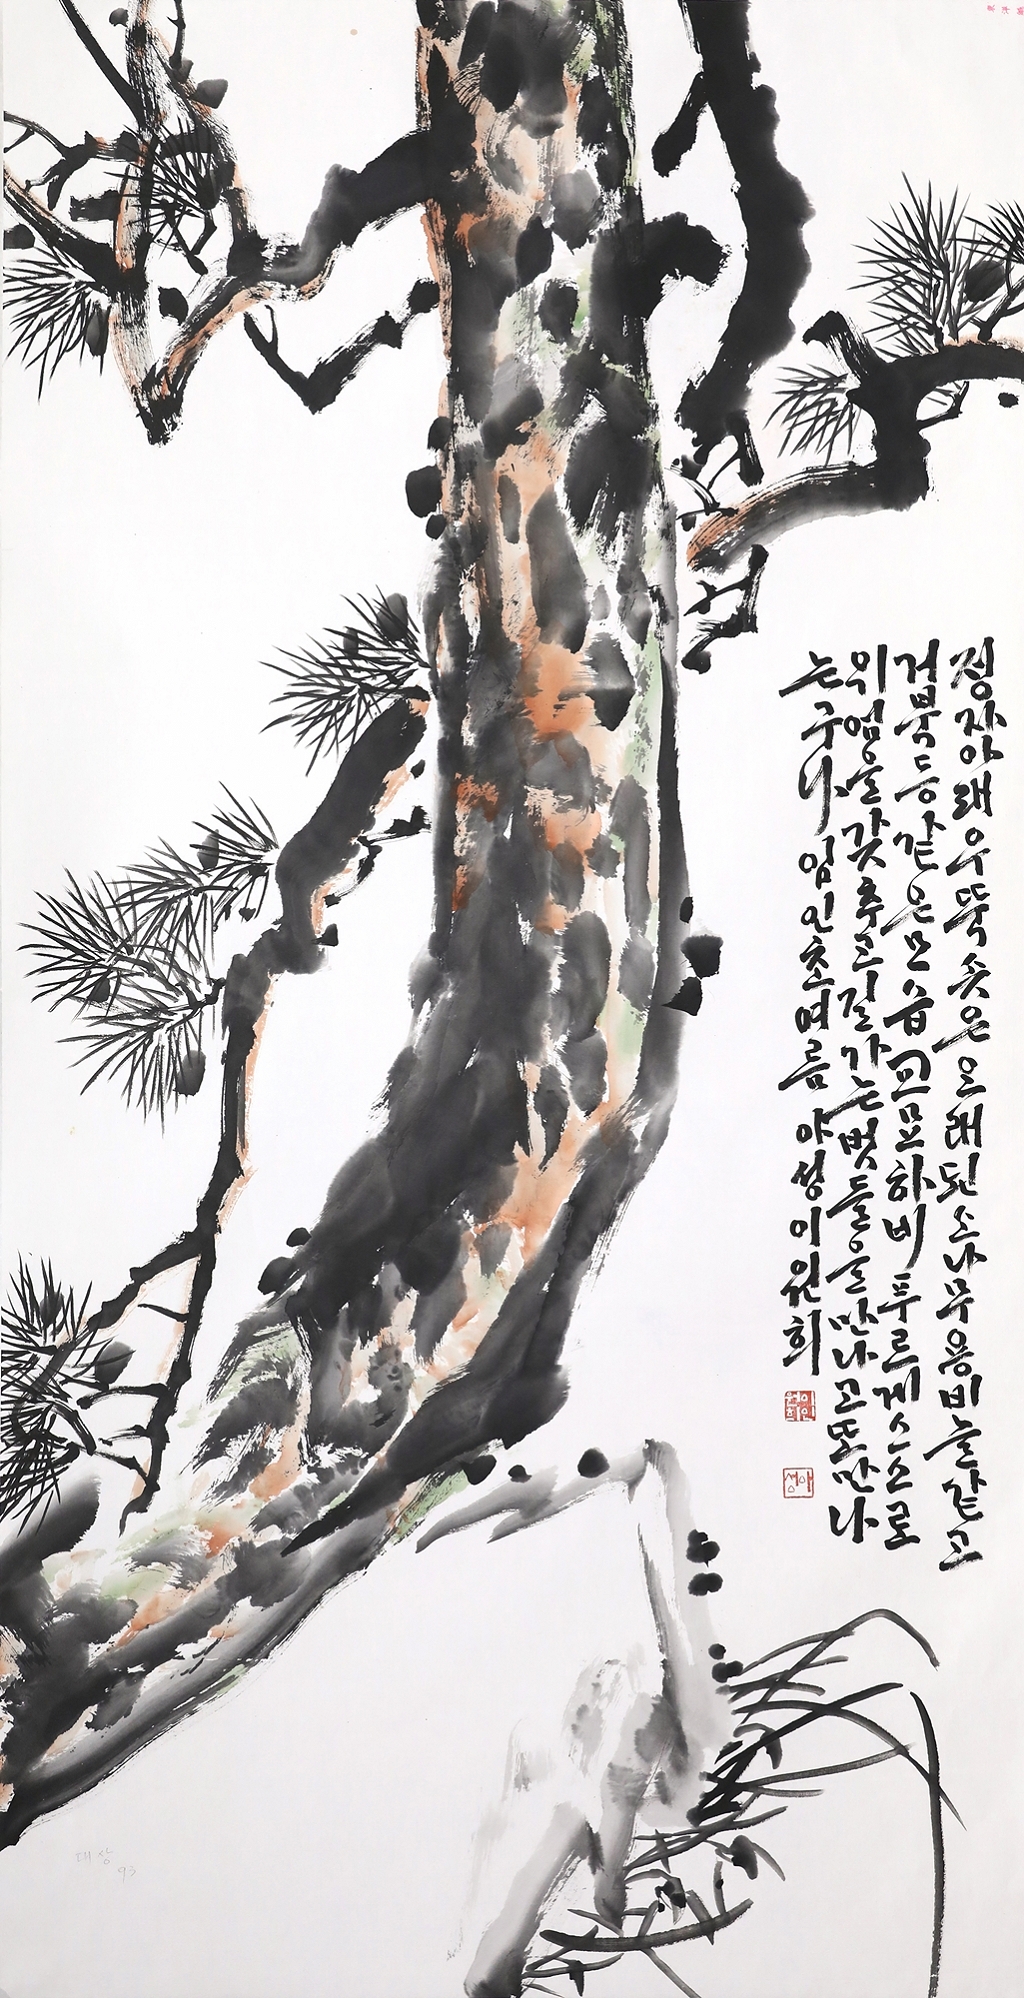 정자아래우뚝솟은오래된소나무용비늘같고
거북등같은모습교묘하비투르게스스로
위엄을 길가는벗들을만나고또만나
는구나 임인초여름 야성이원희
이원희인
야성
대상
93